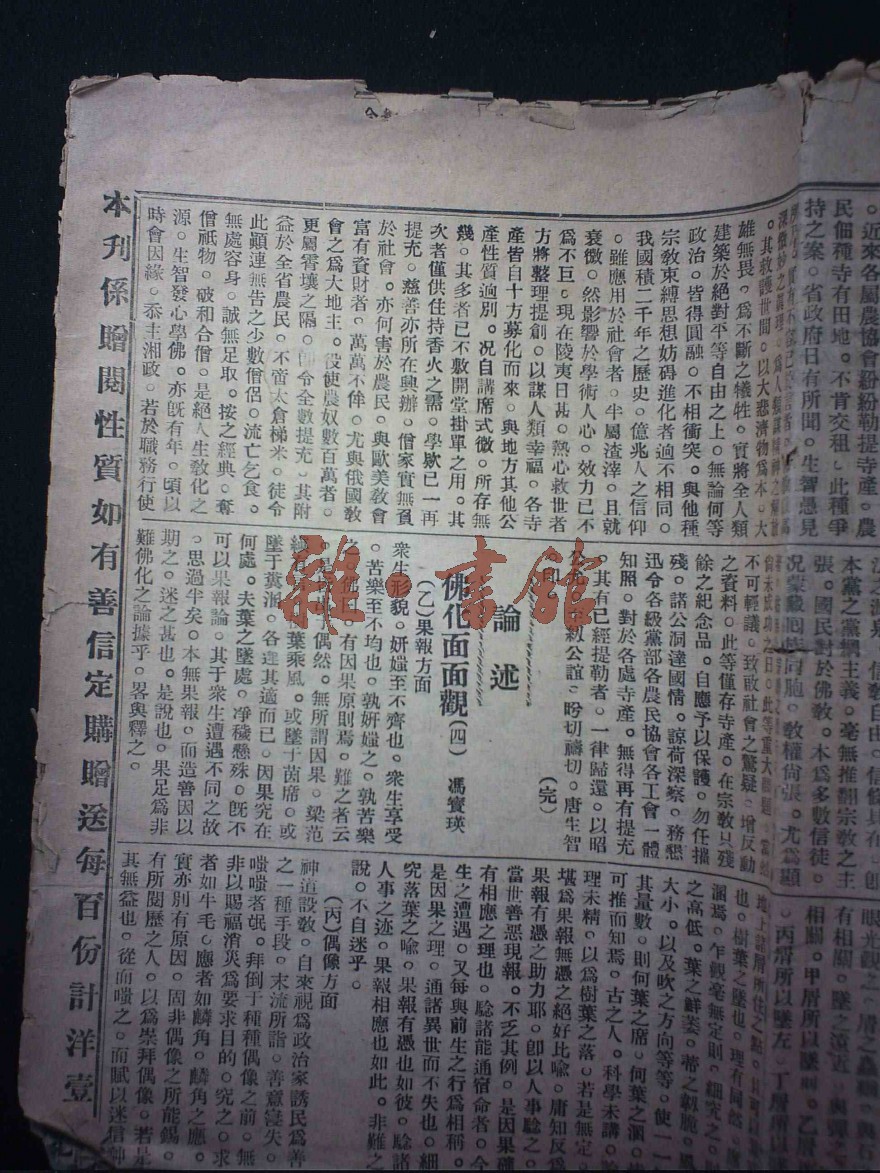 。近來各屬農協會紛紛勒提寺產。農
民佃種寺有田地。不肯交租。此種爭
持之案。省政府日有所聞。生智愚見
。其救護世間。以大悲濟物爲本。大
雄無畏。爲不斷之犧牲。實將全人類
建築於絕對平等自由之上。無論何等
政治。皆得圓融。不相衝突。與他種
宗敎束縛思想妨碍進化者逈不相同。
我國積二千年之歷史。億兆人之信仰
。雖應用於社會者。半屬渣滓。且就
衰微。然影響於學術人心。效力已不
爲不巨。現在陵夷日甚。熱心救世者
方將整理提創。以謀人類幸福。各寺
產皆自十方募化而來。與地方其他公
產性質逈別。况自講席式微。所存無
幾。其多者已不敷開堂掛單之用。其
次者僅供住持香火之需。學欵已一再
提充。慈善亦所在興辦。僧家實無負
於社會。亦何害於農民。與歐美敎會
富有資財者。萬萬不侔。尤與俄國敎
會之爲大地主。役使農奴數百萬者。
更屬霄壤之隔。卽令全數提充。其附
益於全省農民。不啻太倉梯米。徒令
此顚連無告之少數僧侶。流亡乞食。
無處容身。誠無足取。按之經典。奪
僧祗物。破和合僧。是絕人生敎化之
源。生智發心學佛。亦旣有年。頃以
時會因緣。忝主湘政。若於職務行使
江之源泉。信敎自由。信條具在。卽
本黨之黨綱主義。毫無推翻宗敎之主
張。國民對於佛敎。本爲多數信徒。
况蒙藏回族同胞。敎權尙張。尤爲顯
尙未成功之日。此等重大問題。當然
不可輕議。致啟社會之驚疑。增反動
之資料。此等僅存寺產。在宗敎只殘
餘之紀念品。自應予以保護。勿任摧
殘。諸公洞達國情。諒荷深察。務懇
迅令各級黨部各農民協會各工會一體
知照。對於各處寺產。無得再有提充
。其有已經提勒者。一律歸還。以昭
公誼。盼切禱切。唐生智
(完)
論述
佛化面面觀(四) 馮寳瑛
(乙)果報方面
衆生形貌。妍媸至不齊也。衆生享受
。苦樂至不均也。孰妍媸之。孰苦樂
之。佛曰。有因果原則焉。難之者云
偶然。無所謂因果。梁范
葉乘風。或墜于茵席。或
墜于糞溷。各逢其適而已。因果究在
何處。夫葉之墜處。净穢懸殊。旣不
可以果報論。其于衆生遭遇不同之故
。思過半矣。本無果報。而造善因以
期之。迷之甚也。是說也。果足爲非
難佛化之論據乎。畧與釋之。
眼光觀之。
有相關。墜之遠近。與彈
相關。甲層所以墜前。乙層
。丙層所以墜左。丁層所以墜
地上諸層所佳之點。
也。樹葉之墜也。理有同然。
溷焉。乍觀毫無定則。細究之。
之高低。葉之鮮萎。蒂之韌脆。風
大小。以及吹之方向等等。使一一
其量數。則何葉之席。何葉之溷。
可推而知焉。古之人。科學未講。
理未精。以爲樹葉之落。若是無定。
堪爲果報無憑之絕好比喩。庸知反爲
果報有憑之助力耶。卽以人事騐之。
當世善惡現報。不乏其例。是因果確
有相應之理也。騐諸能通宿命者。今
生之遭遇。又每與前生之行爲相稱。
是因果之理。通諸異世而不失也。細
究落葉之喩。果報有憑也如彼。騐諸
人事之迹。果報相應也如此。非難之
說。不自迷乎。
(丙)偶像方面
神道設敎。自來視爲政治家誘民爲善
之一種手段。末流所詣。善意寖失。
嗤嗤者氓。拜倒于種種偶像之前。無
非以賜福消災爲要求目的。究之。求
者如牛毛。應者如麟角。麟角之應。
實亦別有原因。固非偶像之所能錫。
有所閱歷之人。以爲崇拜偶像。若是
其無益也。從而嗤之。而賦以迷信
本刊係贈閱性質如有善信定購贈送每百份計洋壹
雜·書館